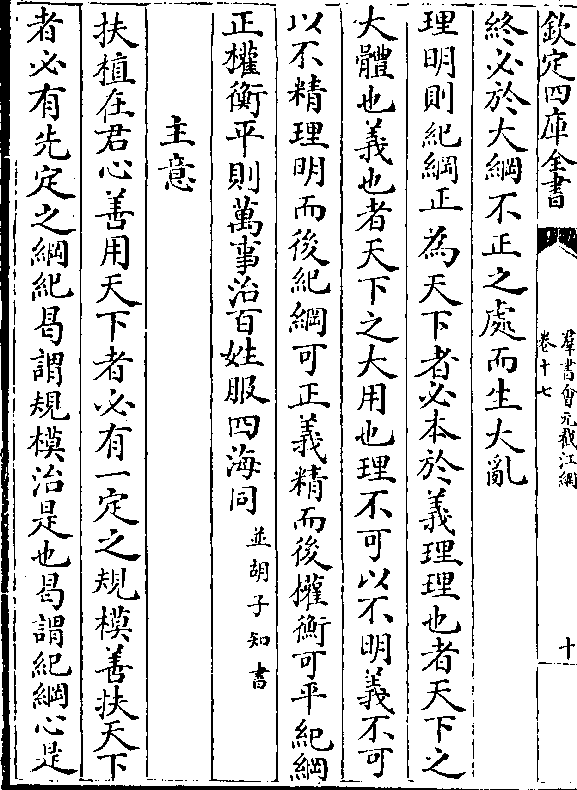 欽定四庫全書
羣書會元截江綱
卷十七
十
終必於大綱不正之處而生大亂
理明則紀綱正為天下者必本於義理理也者天下之
大體也義也者天下之大用也理不可以不明義不可
以不精理明而後紀綱可正義精而後權衡可平紀綱
正權衡平則萬事治百姓服四海同並胡子知書
主意
扶植在君心善用天下者必有一定之規模善扶天下
者必有先定之綱紀曷謂規模治是也曷謂紀綱心是